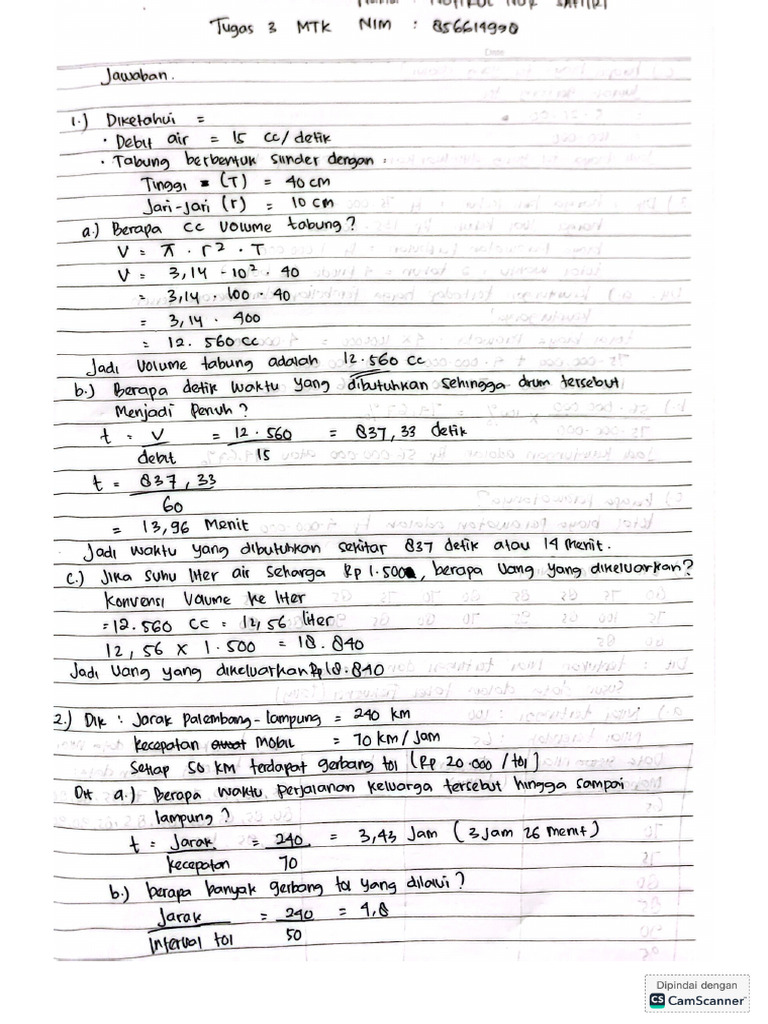 Tugas 3 MTK NIM : 856614990
Jawaban.
1.) Diketahui =
• Debit air = 15 cc/detik
• Tabung berbentuk silinder dengan :
Tinggi = (T) = 40 cm
Jari-jari (r) = 10 cm
a.) Berapa cc volume tabung?
V = π . r² . T
V = 3,14 . 10² . 40
= 3,14 . 100 . 40
= 3,14 . 400
= 12.560 cc
Jadi volume tabung adalah 12.560 cc
b.) Berapa detik waktu yang dibutuhkan sehingga drum tersebut
Menjadi penuh?
t = V = 12.560 = 837,33 detik
debit 15
t = 837,33
60
= 13,96 Menit
Jadi waktu yang dibutuhkan sekitar 837 detik atau 14 menit.
c.) Jika suhu liter air seharga Rp 1.500, berapa uang yang dikeluarkan?
Konversi volume ke liter
= 12.560 cc = 12,56 liter
12,56 x 1.500 = 18.840
Jadi uang yang dikeluarkan Rp 18.840
2.) Dik : Jarak Palembang - lampung = 240 km
kecepatan mobil = 70 km/jam
Setiap 50 km terdapat gerbang tol (Rp 20.000/tol)
Dit a.) Berapa waktu perjalanan keluarga tersebut hingga sampai
lampung?
t = Jarak = 240 = 3,43 Jam (3 jam 26 menit)
kecepatan 70
b.) berapa banyak gerbang tol yang dilalui?
Jarak = 240 = 4,8
Interval tol 50
Dipindai dengan
CS CamScanner